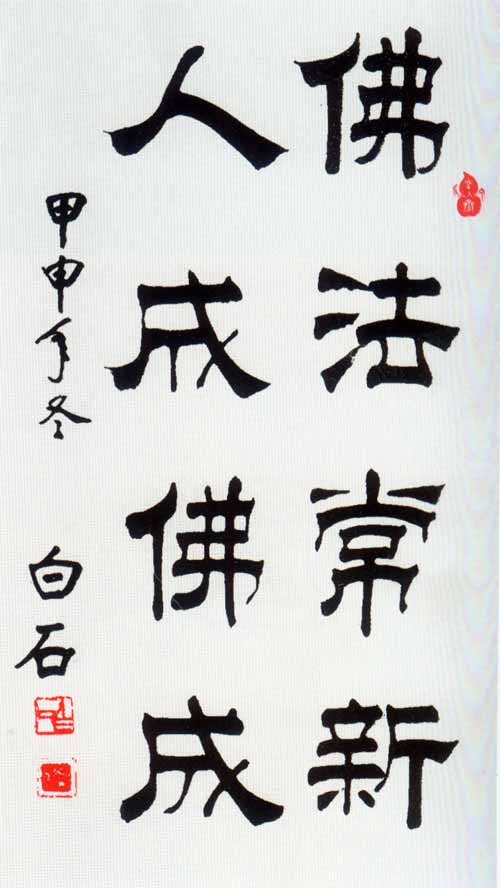 佛法常新
人成佛成
甲申年冬
白石